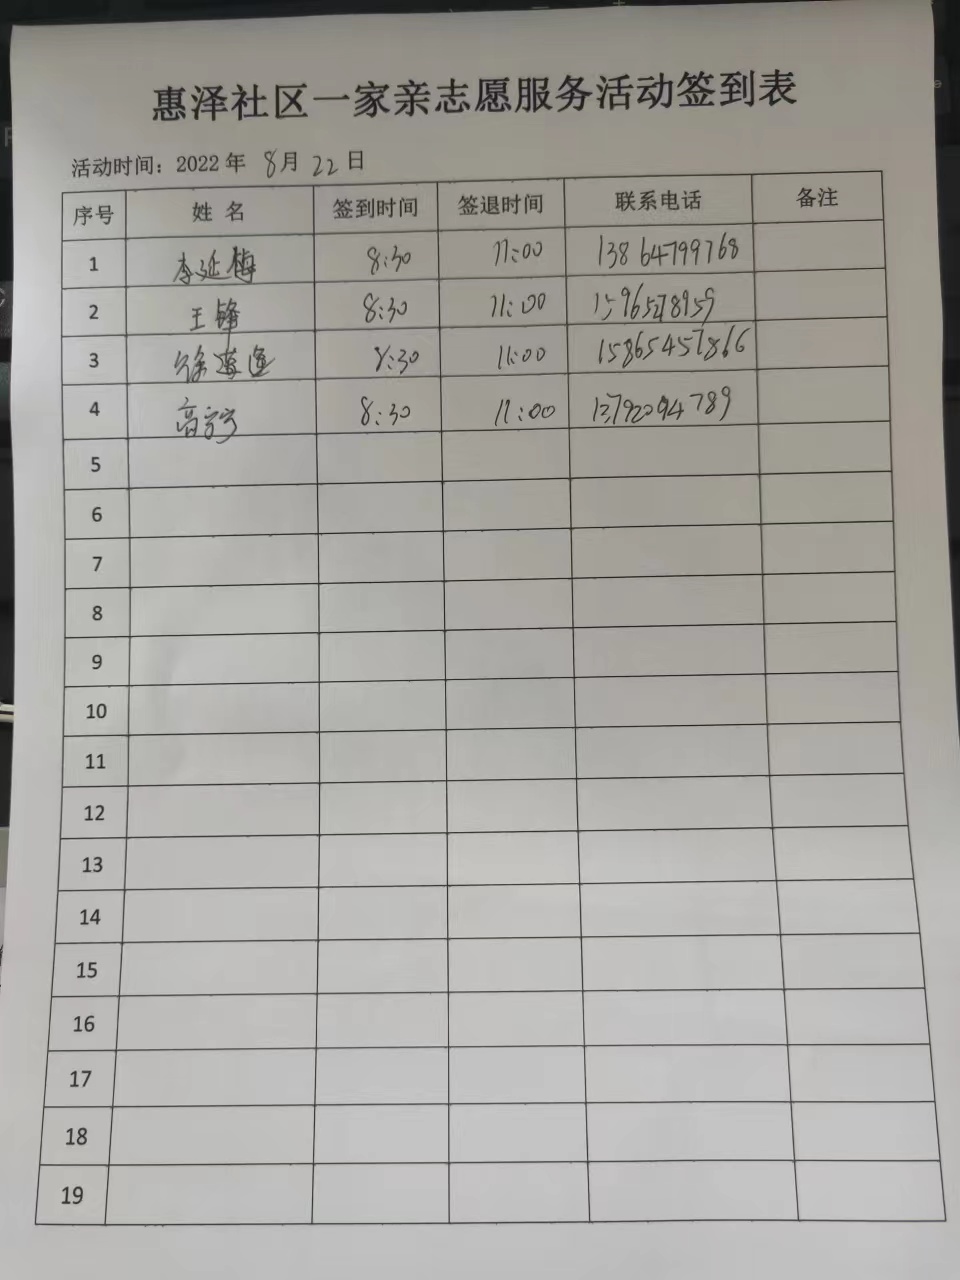 惠泽社区一家亲志愿服务活动签到表
活动时间：2022 年 8月 22 日
序号 姓 名 签到时间 签退时间 联系电话 备注
1 李延梅 8:30 11:00 13864799768
2 王锋 8:30 11:00
3 徐莲莲 8:30 11:00 15865457866
4 高宁宁 8:30 11:00 13792094789
5
6
7
8
9
10
11
12
13
14
15
16
17
18
19